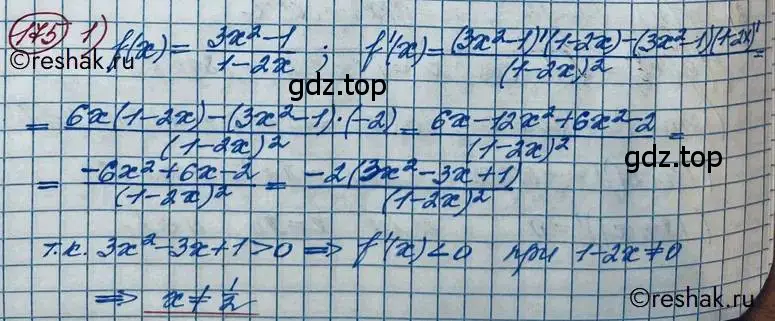 175 1) f(x) = (3x²-1)/(1-2x) ; f'(x) = ((3x²-1)'(1-2x)-(3x²-1)(1-2x)')/(1-2x)² =
gdz.top
= (6x(1-2x)-(3x²-1)·(-2))/(1-2x)² = (6x-12x²+6x²-2)/(1-2x)² =
gdz.top
= (-6x²+6x-2)/(1-2x)² = (-2(3x²-3x+1))/(1-2x)²
т.к. 3x²-3x+1>0 ⇒ f'(x)<0 при 1-2x≠0
⇒ x≠1/2
©Reshak.ru